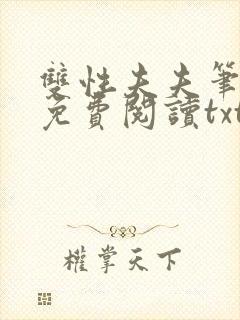 雙性夫夫筆
免費閱讀txt
權掌天下